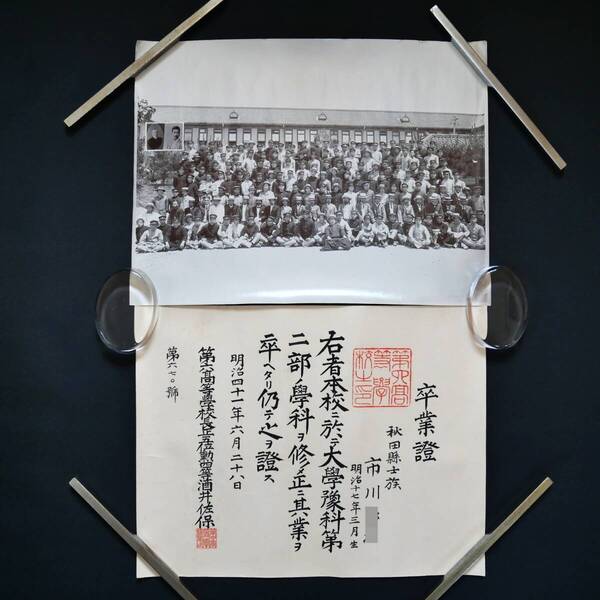 卒業證
秋田縣士族
市川
明治十七年三月生
右者本校ニ於テ大學豫科第
二部ノ學科ヲ修メ正ニ其業ヲ
卒ヘタリ仍テ之ヲ證ス
明治四十一年六月二十八日
第六高等學校長正五位勲四等酒井佐保
第六七〇號